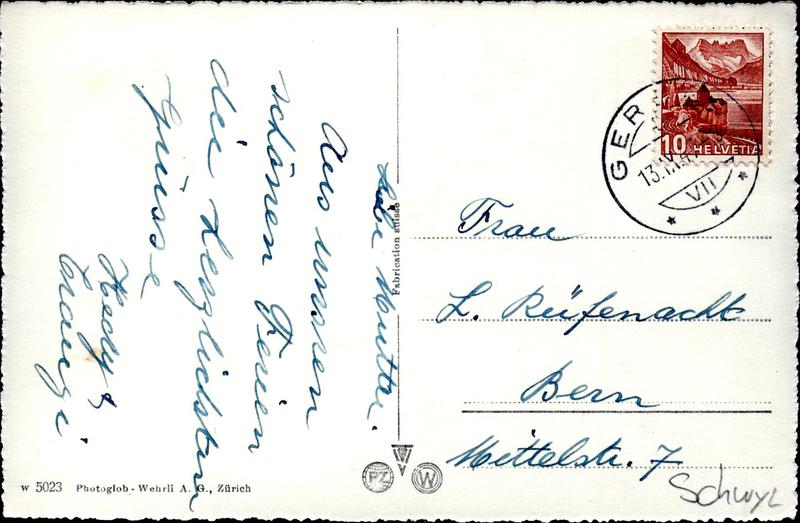 Liebe Mutter.
Aus unseren
schönen Ferien
die herzlichsten
Grüsse
Hedy &
Fabrication suisse
HELVETIA
10
GER
13.
VII
Frau
L. Rüfenacht
Bern
Mittelstr. 7
Schwyz
PZ
W
w 5023 Photoglob-Wehrli A. G., Zürich